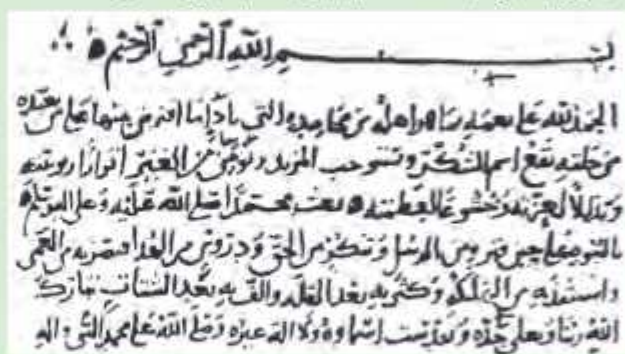 بسم الله الرحمن الرحيم
الحمد لله على نعمه بما هو اهله من محامده التي باداء ما افترض منها على من تعبده
من خلقه يقع اسم الشكر وتستوجب المزيد ونؤمن من الغير اقرارا بربوبيته
وتذللا لعزته وخشوعا لعظمته بعث محمدا صلى الله عليه وعلى
على حين من الرسل وتنكر من الحق ودروس من الهدى فبصر به من العمى
واستنقذ به من الهلكة وكثر به بعد القلة والف به بعد الشتات فتبارك
الله ربنا وتعلى جده وتقدست اسماوه ولا اله غيره وصلى الله على محمد النبي واله